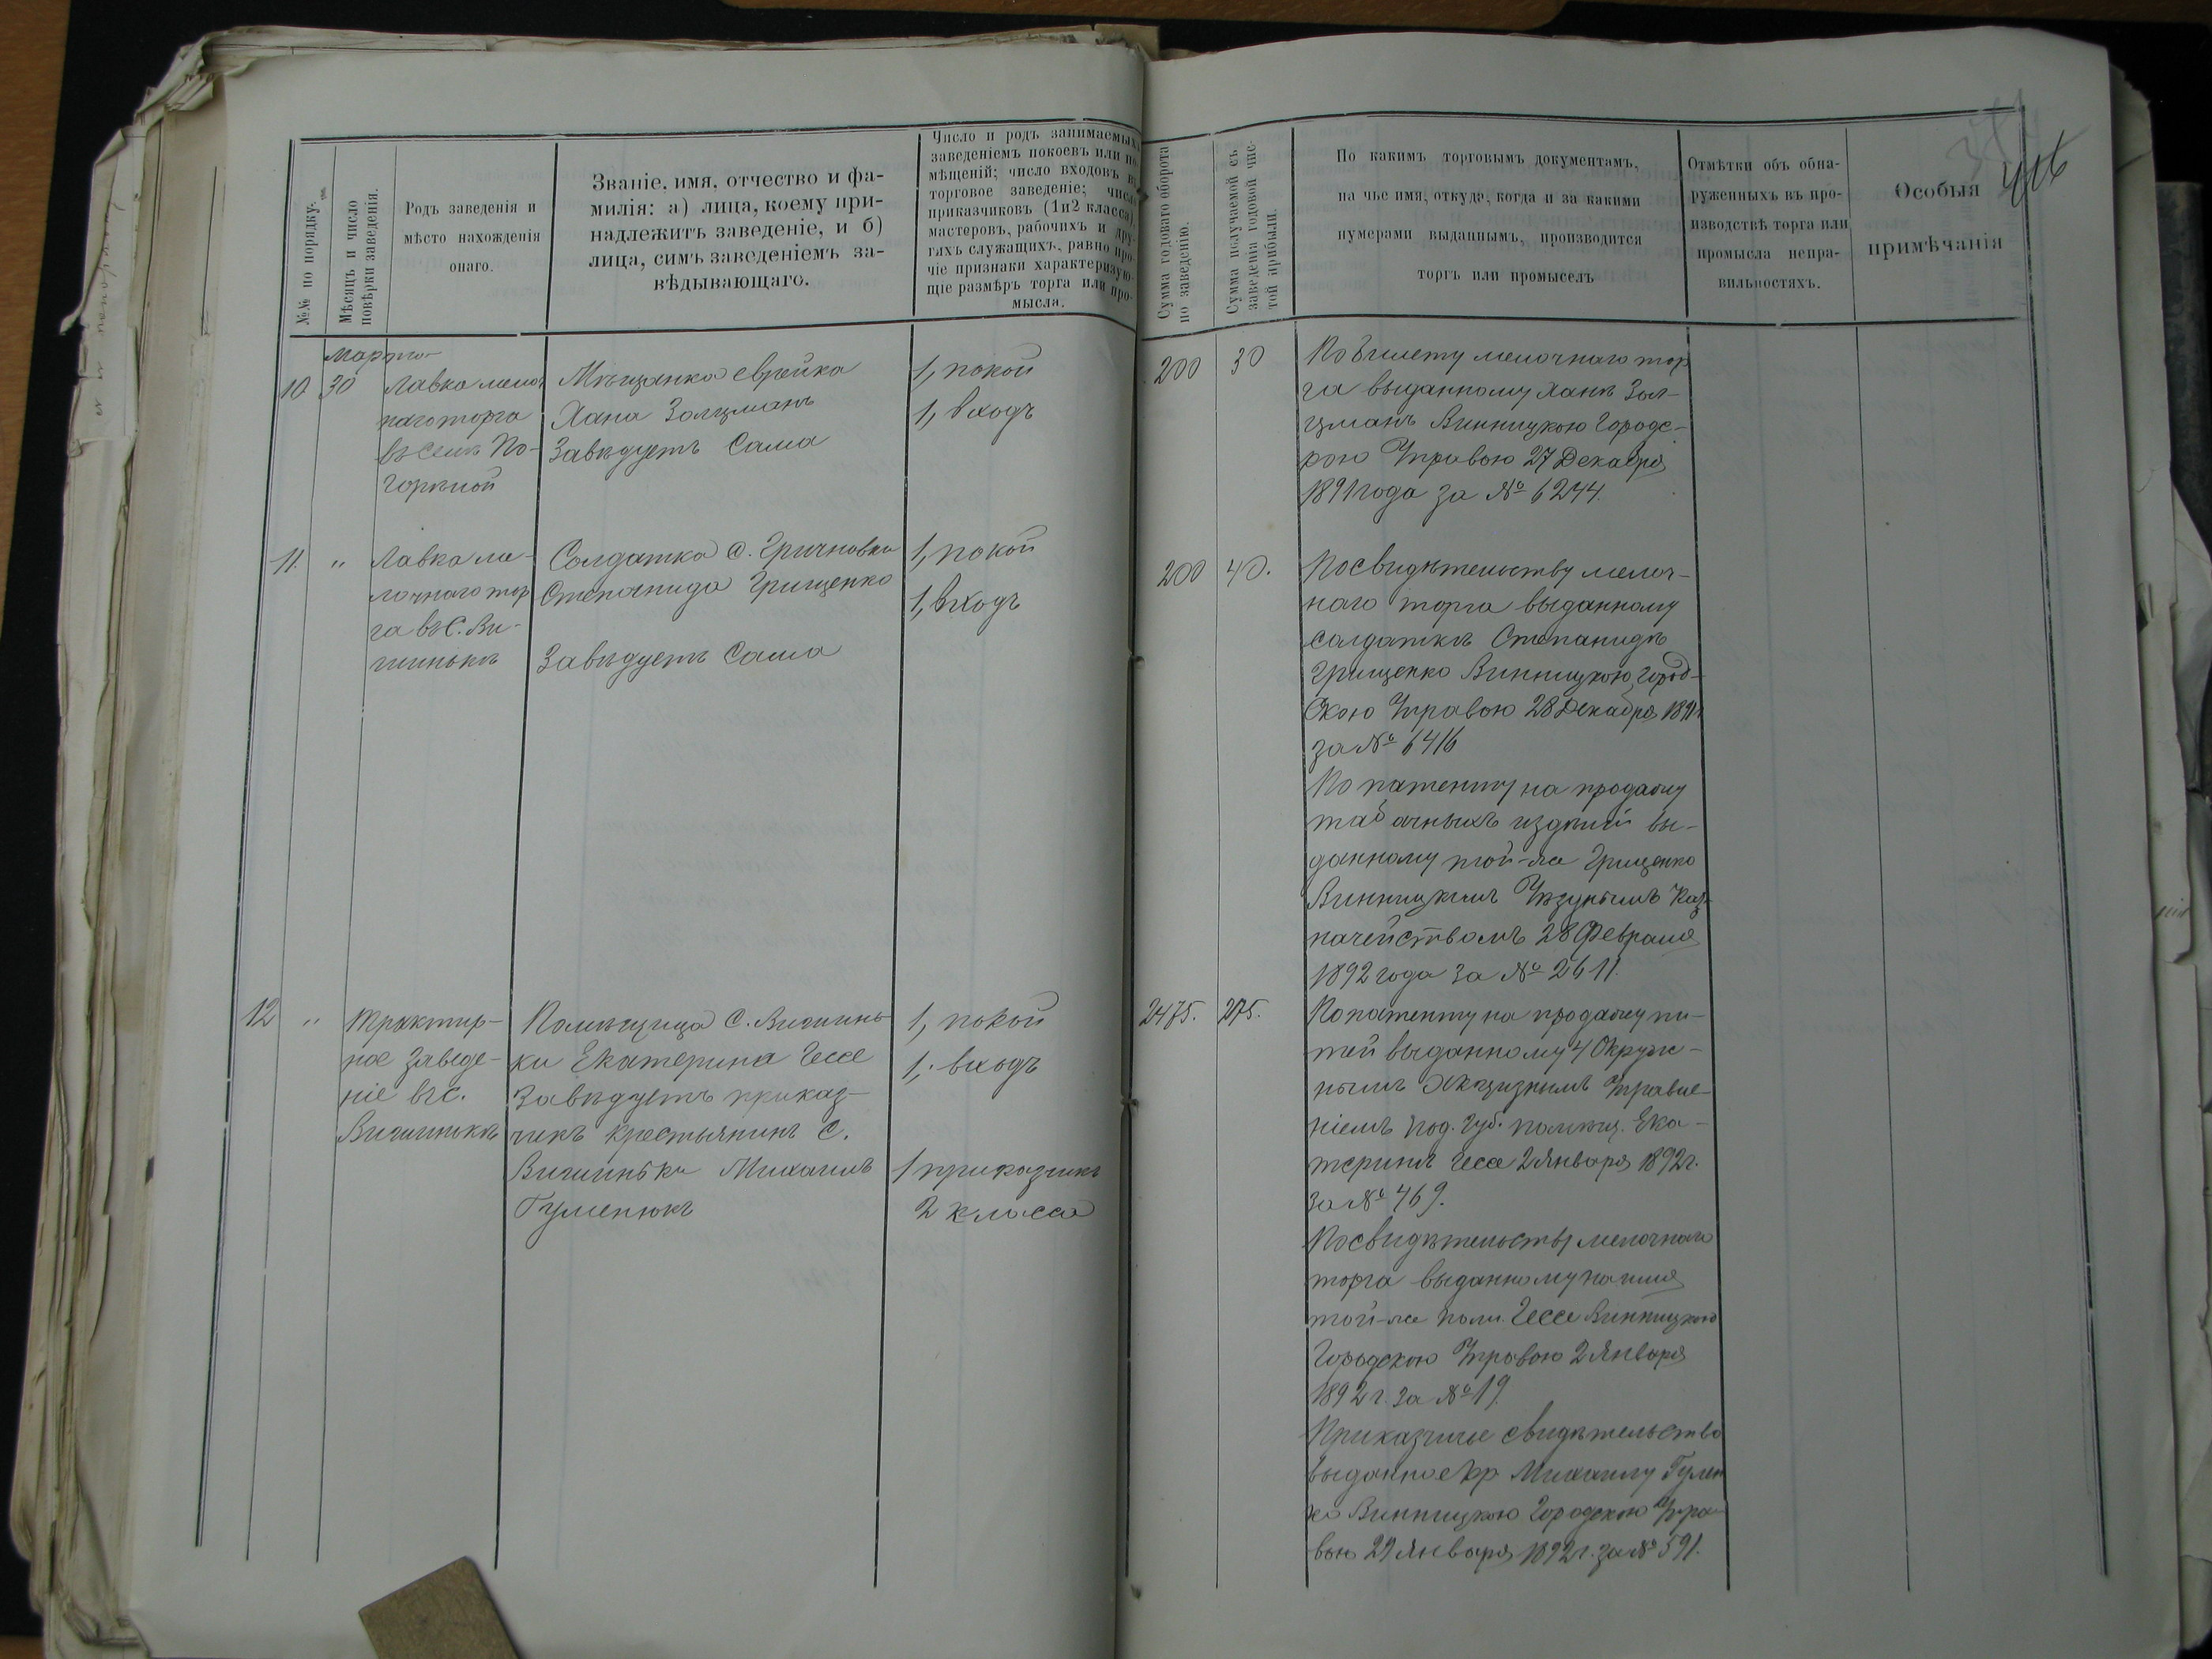 №№ по порядку.
Мѣсяцъ и число
повѣрки заведенія.
Родъ заведенія и
мѣсто нахожденія
онаго.
Званіе, имя, отчество и фа-
милія: а) лица, коему при-
надлежитъ заведеніе, и б)
лица, симъ заведеніемъ за-
вѣдывающаго.
Число и родъ занимаемыхъ
заведеніемъ покоевъ или по-
мѣщеній; число входовъ въ
торговое заведеніе; число
приказчиковъ (1 и 2 класса),
мастеровъ, рабочихъ и дру-
гихъ служащихъ, равно про-
чіе признаки характеризую-
щіе размѣръ торга или про-
мысла.
Сумма годоваго оборота
по заведенію.
Сумма получаемой съ
заведенія годовой чис-
той прибыли.
По какимъ торговымъ документамъ,
на чье имя, откуда, когда и за какими
нумерами выданнымъ, производится
торгъ или промыселъ
Отмѣтки объ обна-
руженныхъ въ про-
изводствѣ торга или
промысла непра-
вильностяхъ.
Особыя
примѣчанія
Марта
10
30
Лавка мелоч
наго торга
въ селѣ По-
горѣлой
Мѣщанка еврейка
Хана Золцманъ
Завѣдуетъ Сама
1, покой
1, входъ
200
30
По билету мелочнаго тор
га выданному Ханѣ Зол-
цманъ Винницкою Городс-
кою Управою 27 Декабря
1891 года за № 6244.
11.
"
Лавка ме-
лочнаго тор
га въ С. Ви-
шинькѣ
Солдатка С. Гричновки
Степанида Грищенко
Завѣдуетъ Сама
1, покой
1, входъ
200
40.
По свидѣтельству мелоч-
наго торга выданному
солдаткѣ Степанидѣ
Грищенко Винницкою Город-
Скою Управою 28 Декабря 1891 г
за № 6416
По патенту на продажу
табачныхъ издѣлій вы-
данному той-же Грищенко
Винницкимъ Уѣзднымъ Каз-
начействомъ 28 Февраля
1892 года за № 2611.
12
"
Трактир-
ное Заведе-
ніе въ С.
Вишинькѣ
Помѣщица С. Вишинь-
ки Екатерина Гессе
Завѣдуетъ приказ-
чикъ крестьянинъ С.
Вишиньки Михаилъ
Гуменюкъ
1, покой
1, входъ
1 приказчикъ
2 класса
2475.
275.
По патенту на продажу пи-
тей выданному 4 Окруж-
нымъ Акцизнымъ Управле-
ніемъ Под. Губ. помѣщ. Ека-
теринѣ Гессе 2 Января 1892 г.
за № 469.
По свидѣтельству мелочнаго
торга выданному на имя
той-же пом. Гессе Винницкою
Городскою Управою 2 Января
1892 г. за № 19.
Приказчичье свидѣтельство
выданное кр. Михаилу Гумен
ку Винницкою Городскою Упра
вою 29 Января 1892 г. за № 591.